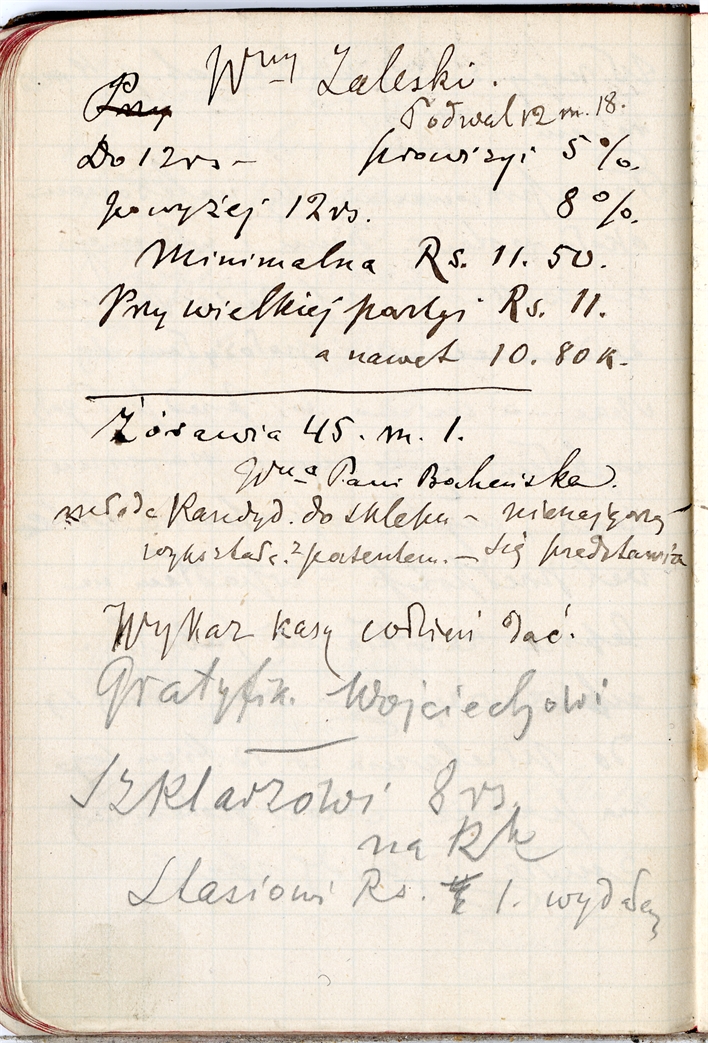 Wny Zaleski.
Przy
Podwal 12 m. 18.
Do 12 rs – prowizyi 5%.
powyżej 12 rs. 8%.
Minimalna Rs. 11. 50.
Przy wielkiej partyi Rs. 11.
a nawet 10. 80 k.
Żórawia 45. m. 1.
Wna Pani Bocheńska.
młoda Kandyd. do sklepu –
wykształc. z patentem. – się przedstawia
Wykaz kasy codzień dać.
Gratyfik. Wojciechowi
Szklarzowi 8 rs
na Rk
Stasiowi Rs. 1. wydałem